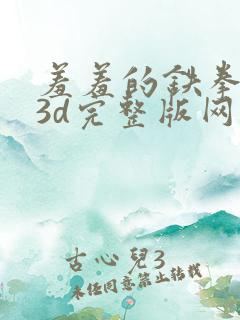 羞羞的鉄拳
3d完整版网
古心兒3
未经同意禁止转载